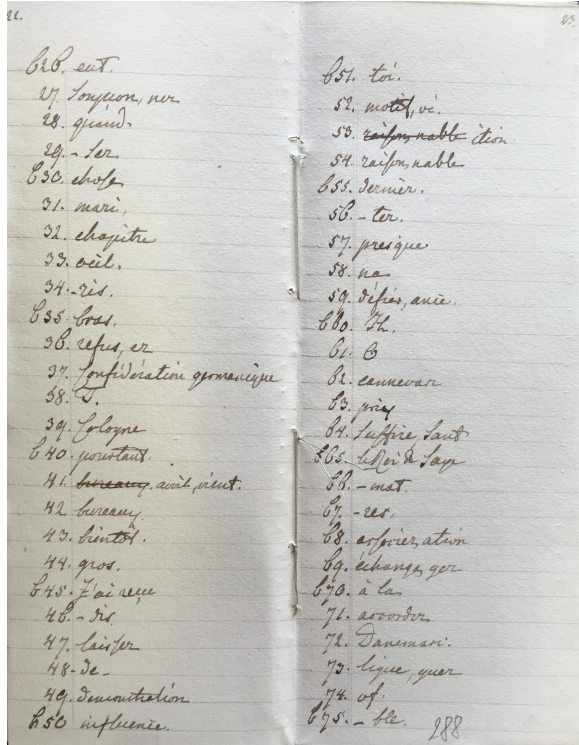 22.
626. eut.
27. Soupçon, ner
28. quand.
29. - Ser
630. chose
31. mari,
32. chapitre
33. oeil.
34. - rès.
635. bras.
36. refus, er
37. Confédération germanique
38. T.
39. Cologne
640. pourtant.
41. bureaux. avoit, vient.
42. bureaux
43. bientôt.
44. gros.
645. J'ai reçu
46. - dis.
47. laisser
48. - de -
49. démonstration
650 influence.
23.
651. toi.
52. motif, vé.
53 raisonnable ition
54. raisonnable
655. dernier.
56. - ter.
57. presque
58. na
59. défier, ance.
660. Th.
61.
62.
63. prix
64. Suffire, Sant
665. le Roi de Saxe
66. - mat.
67. - res.
68. associer, ation
69. échange, ger
670. à la
71. accorder
72. Danemarc.
73. ligue, guer
74. of.
675. - ble.
288